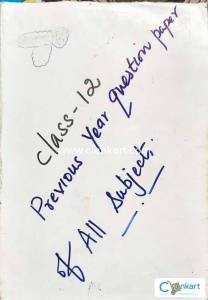 class-12
Previous Year Question paper
of All Subjects.
Clankart